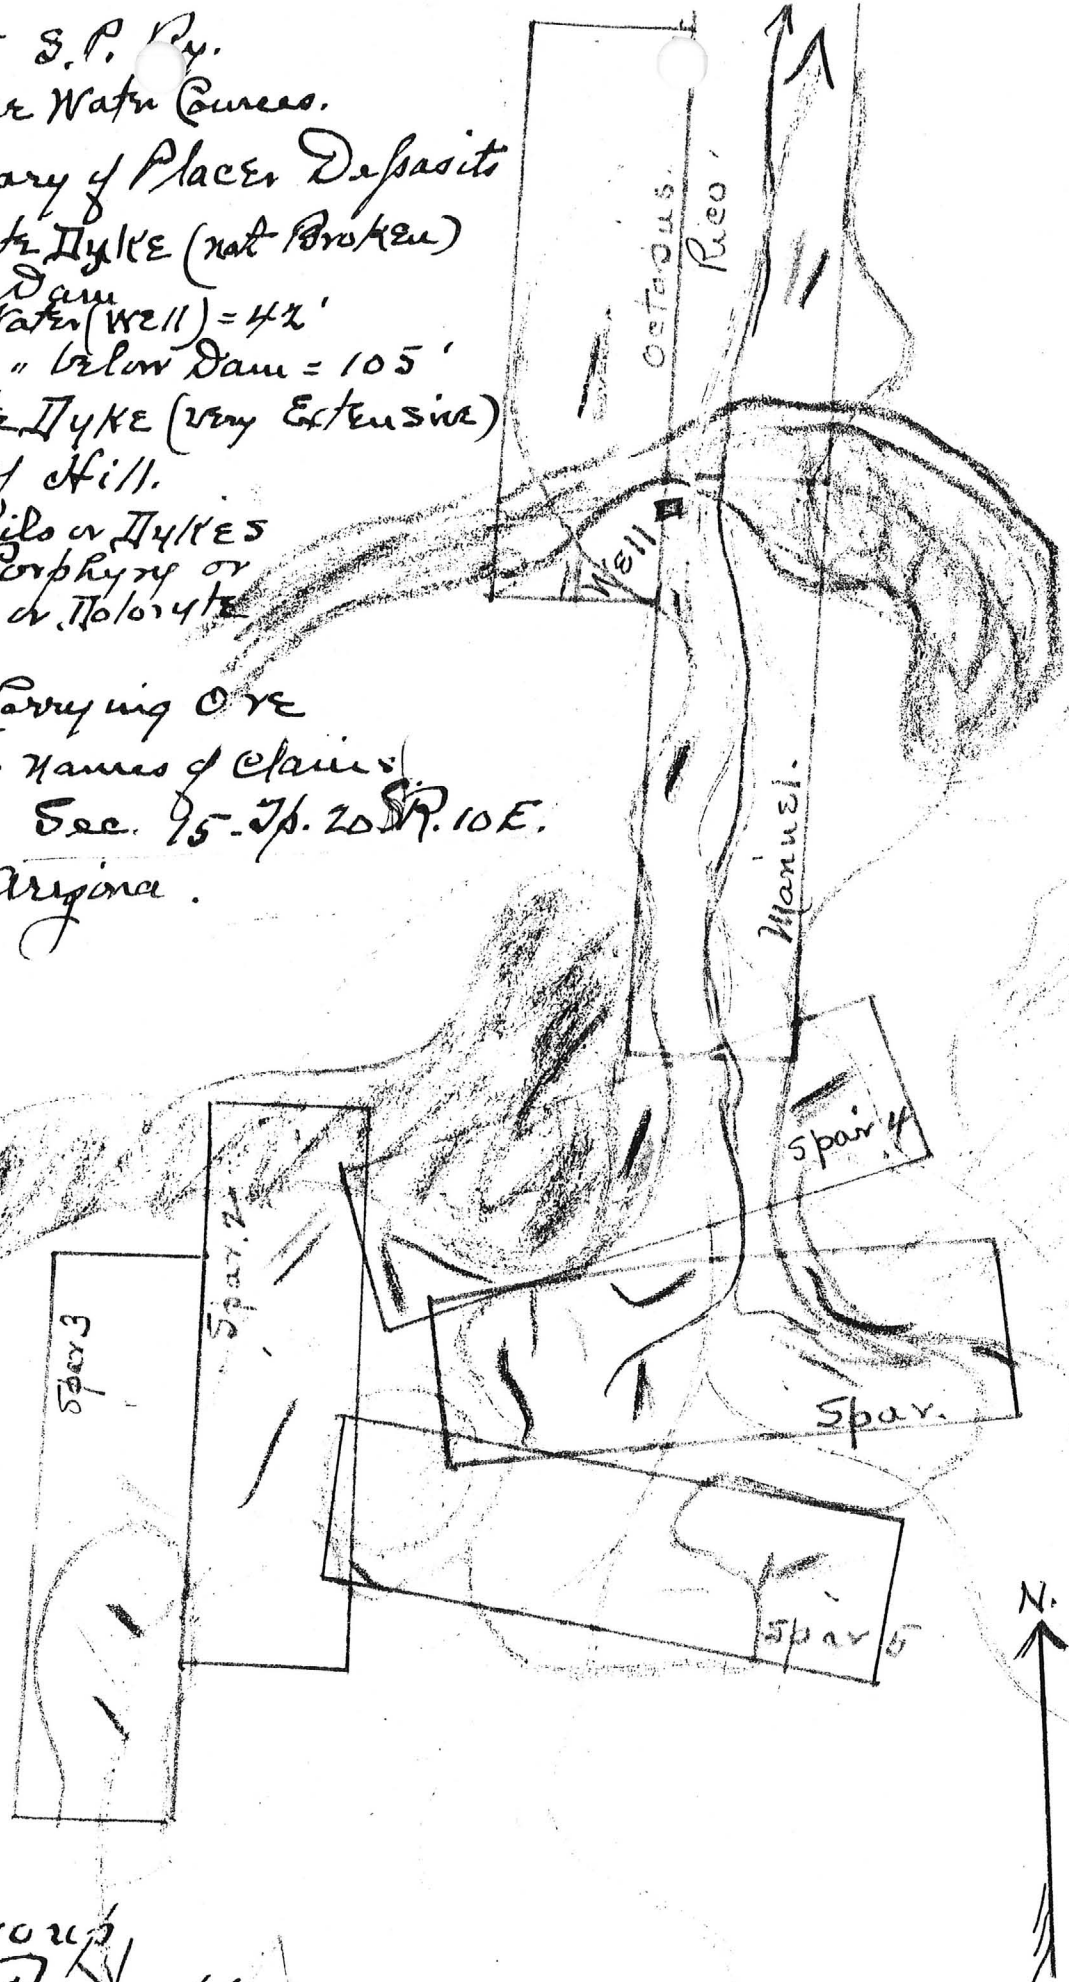 S. P. Ry.
Water Cources.
Placer Depasits
Dyke (not Broken)
Dam
(Well) = 42'
" below Dam = 105'
Dyke (very Extensive)
Hill.
or Dykes
Porphyry or
or Doloryte
Carrying Ore
names of Claims
Sec. 95-Tp. 20 S R. 10 E.
Arizona.
Octopus.
Rico.
Well
Manuel.
Spar 4
Spar. 2
Spar 3
Spar.
Spar 5
N.